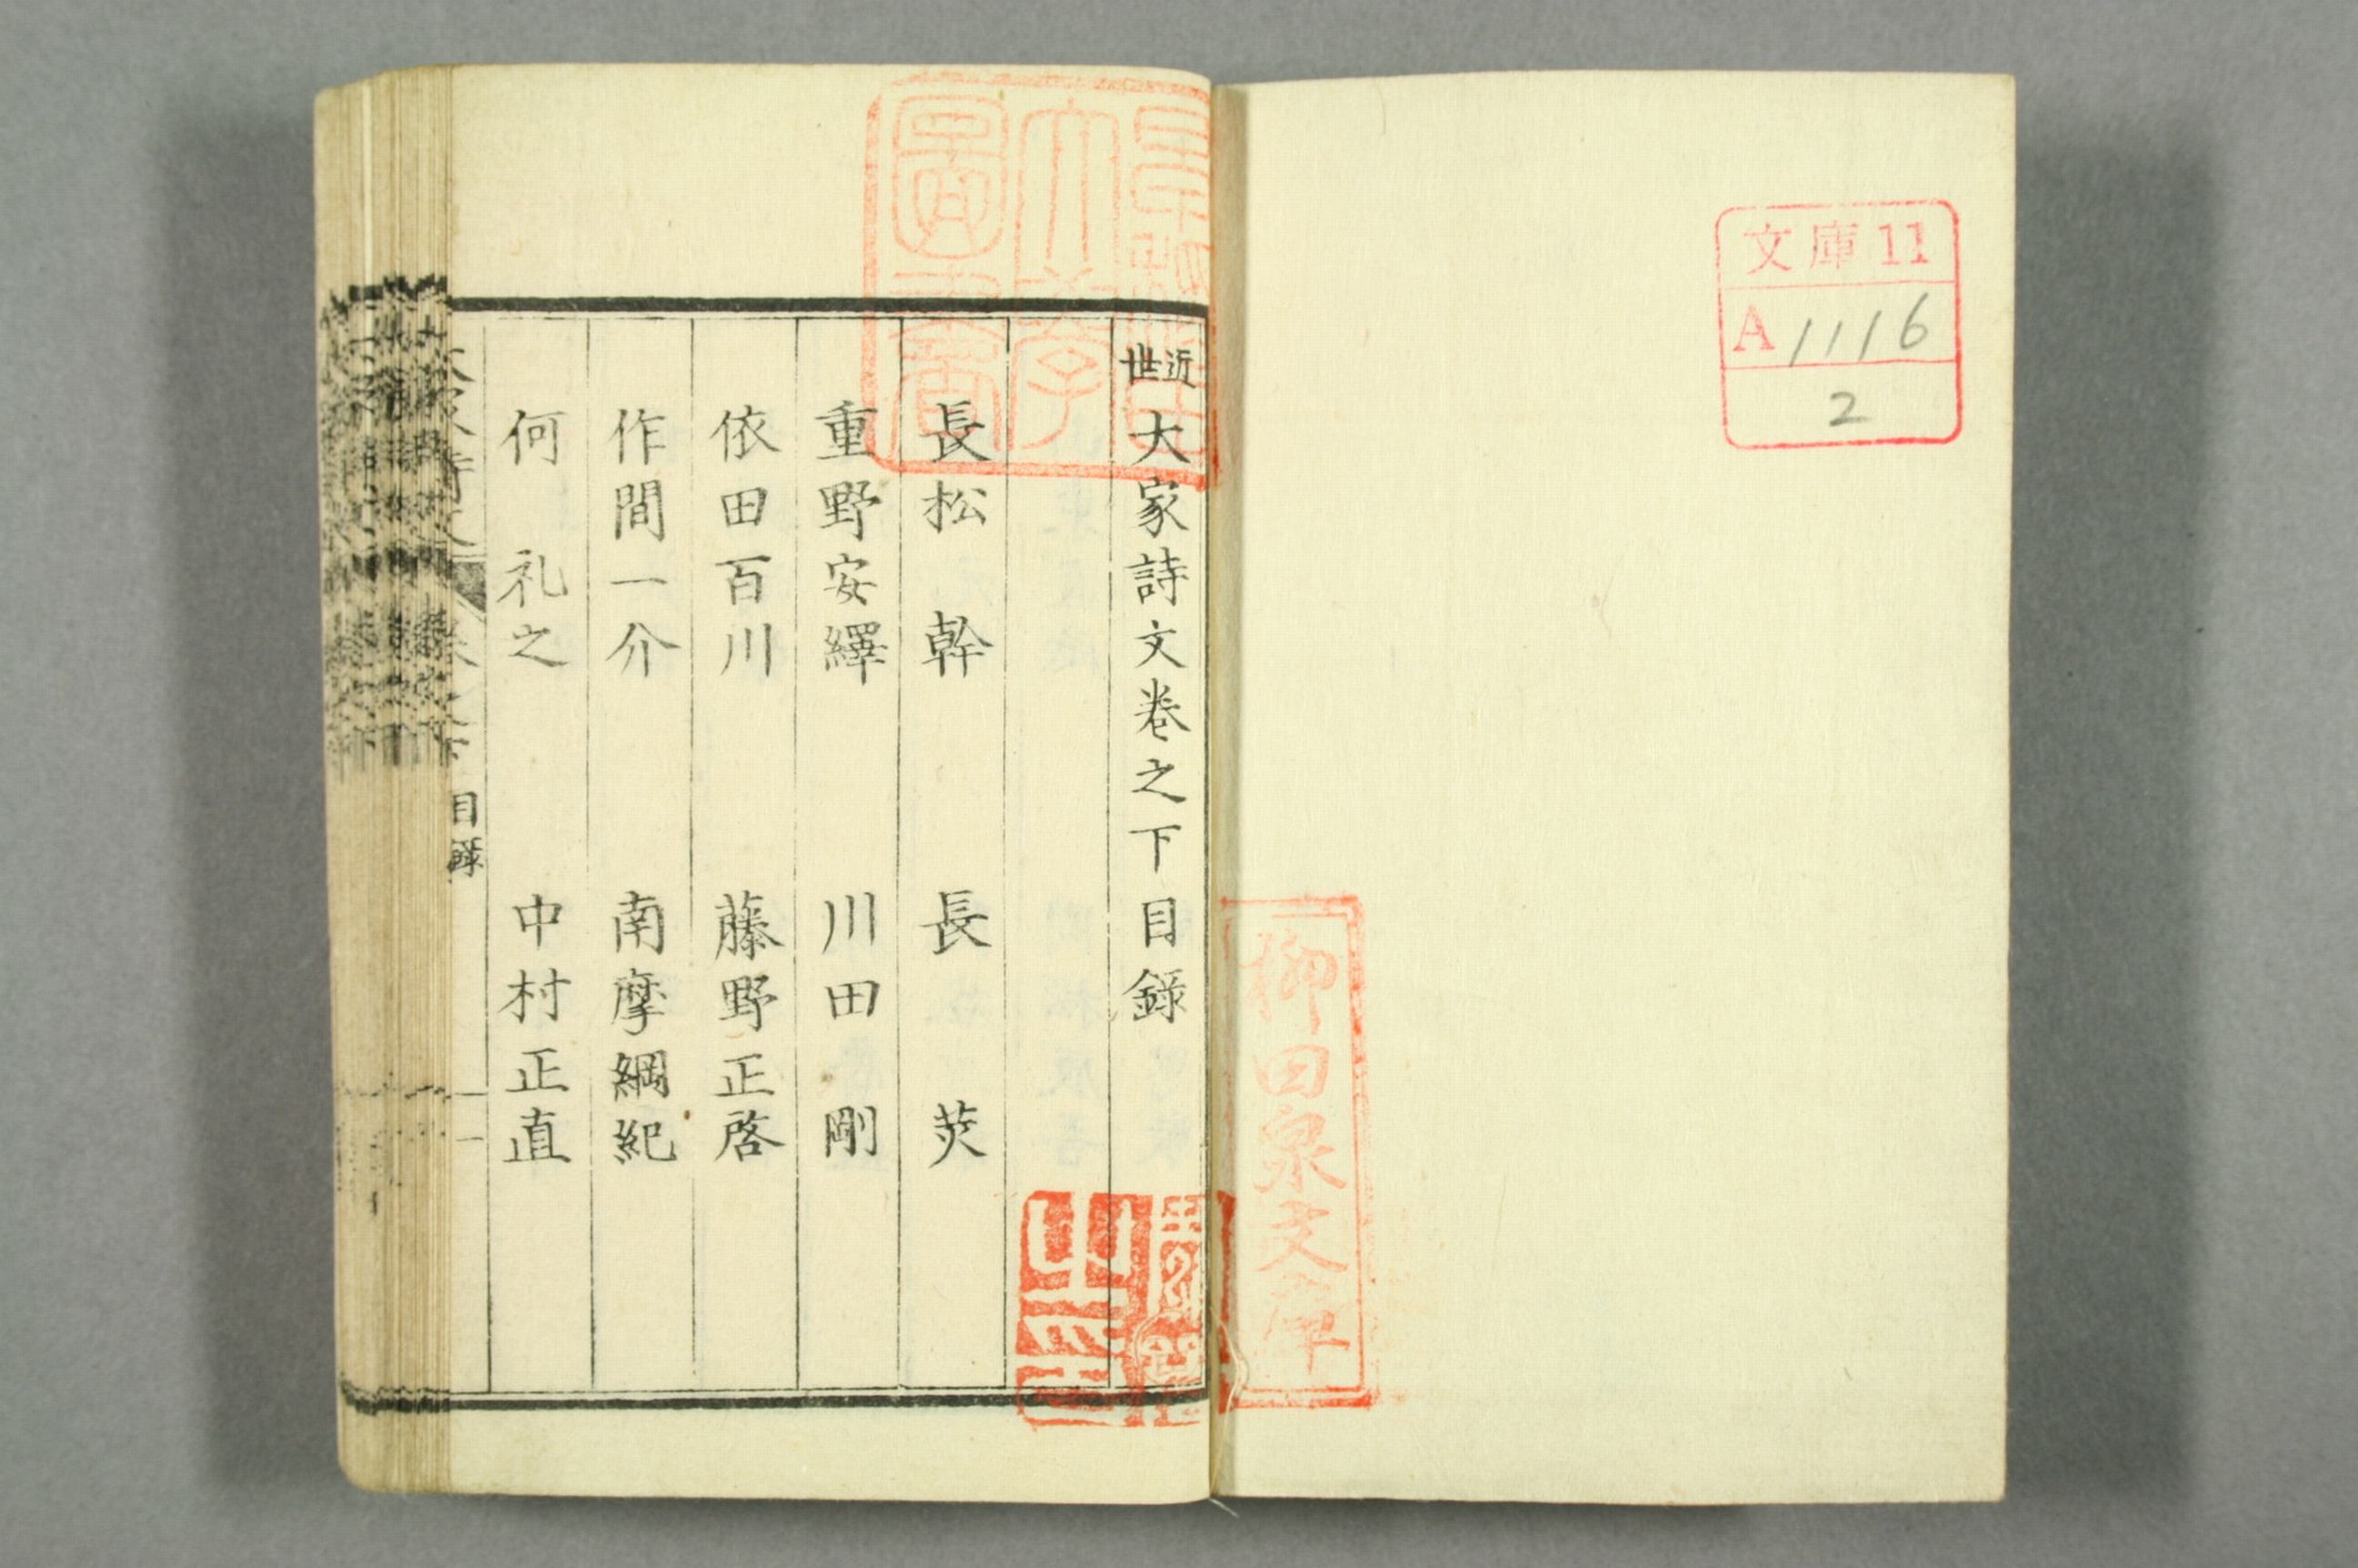 文庫11
A1116
2
柳田泉文庫
早稲田
大学
圖書
近世大家詩文巻之下目錄
長松幹 長炗
重野安繹 川田剛
依田百川 藤野正啓
作間一介 南摩綱紀
何礼之 中村正直
目錄
一